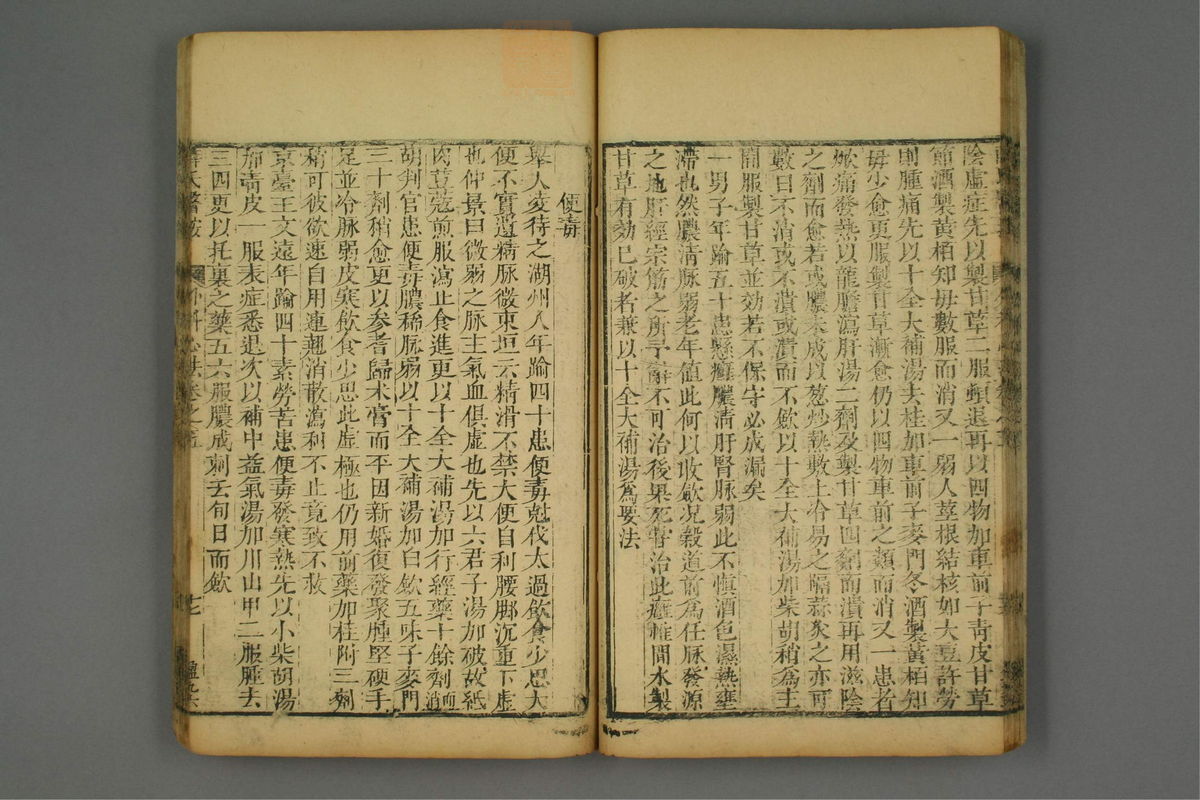 陰虛症先以製甘草二服頓退再以四物加車前子青皮甘草
節酒製黃栢知母數服而消又一弱人莖根結核如大豆許勞
則腫痛先以十全大補湯去桂加車前子麥門冬酒製黃栢知
母少愈更服製甘草漸愈仍以四物車前之類而消又一患者
焮痛發熱以龍膽瀉肝湯二劑及製甘草四劑而潰再用滋陰
之劑而愈若或膿未成以葱炒熱敷上冷易之隔蒜灸之亦可
數日不消或不潰或潰而不歛以十全大補湯加柴胡稍爲主
間服製甘草並効若不保守必成漏矣
一男子年踰五十患懸癰膿清肝腎脉弱此不慎酒色濕熱壅
滯也然膿清脉弱老年值此何以收歛况榖道前爲任脉發源
之地肝經宗筋之所予辭不可治後果死害治此癰惟間水製
甘草有効已破者兼以十全大補湯爲要法
便毒
舉人凌待之湖州人年踰四十患便毒尅伐太過飲食少思大
便不實遺精脉微東垣云精滑不禁大便自利腰脚沉重下虛
也仲景曰微弱之脉主氣血俱虛也先以六君子湯加破故紙
肉荳蔻煎服瀉止食進更以十全大補湯加行經藥十餘劑消而
胡判官患便毒膿稀脉弱以十全大補湯加白歛五味子麥門
三十劑稍愈更以参耆歸术膏而平因新婚復發聚腫堅硬手
足並冷脉弱皮寒飲食少思此虛極也仍用前藥加桂附三劑
稍可彼欲速自用連翹消散瀉利不止竟致不救
京臺王文遠年踰四十素勞苦患便毒發寒熱先以小柴胡湯
加青皮一服表症悉退次以補中益氣湯加川山甲二服腫去
三四更以托裏之藥五六服膿成刺去旬日而歛
薛氏醫案
外科心法卷之五
十一